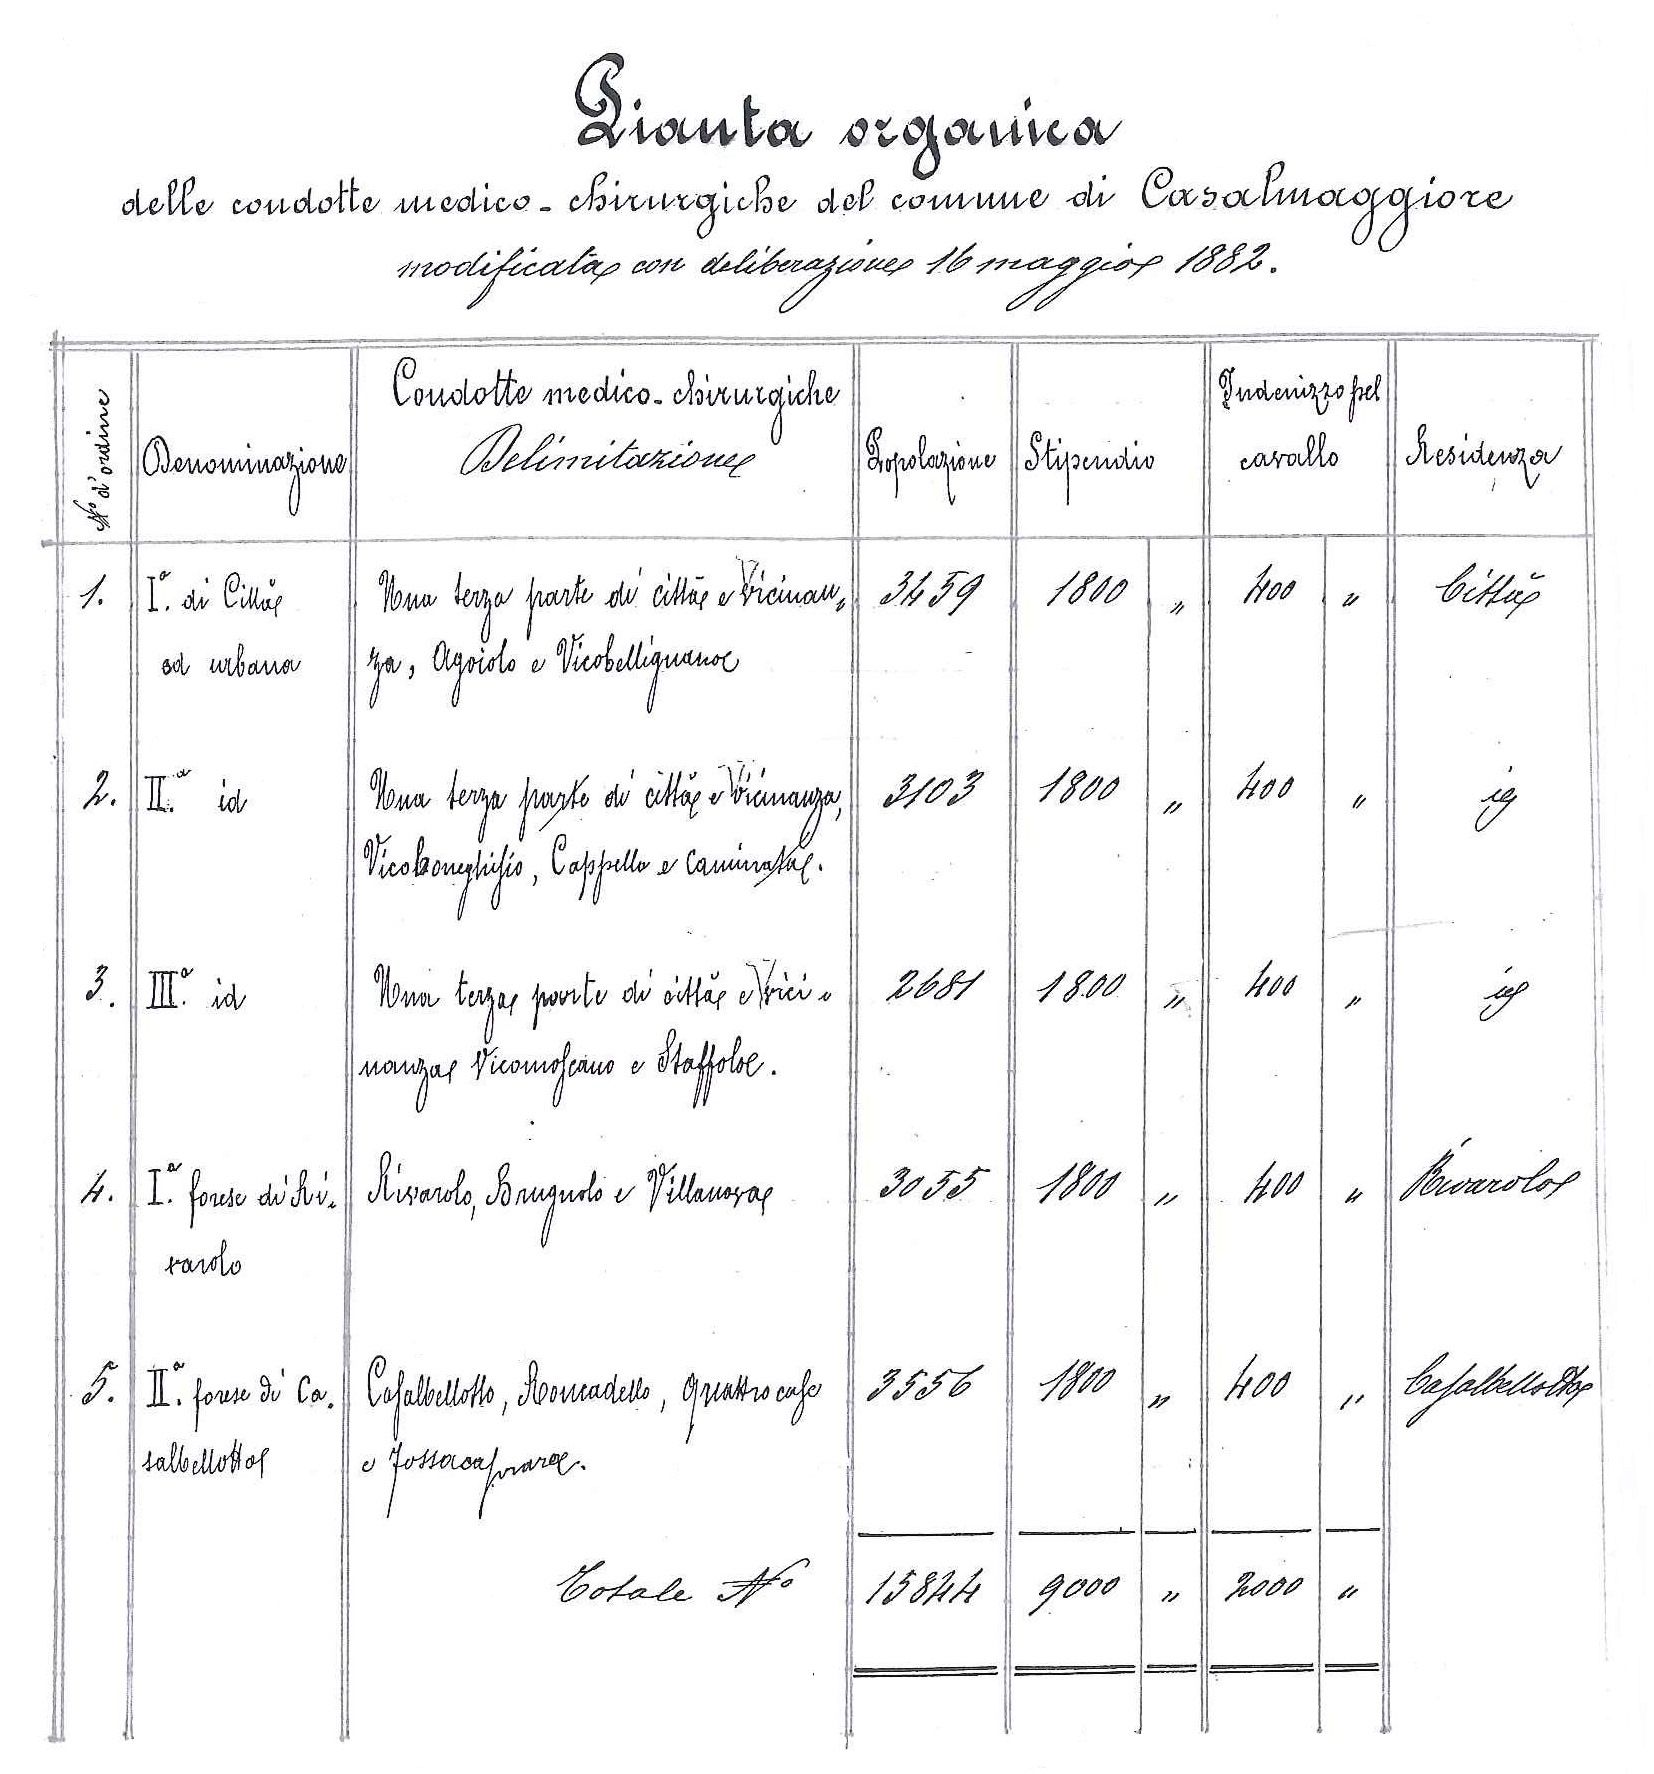 Pianta organica
delle condotte medico-chirurgiche del comune di Casalmaggiore
modificata con deliberazione 16 maggio 1882.
N.o d'ordine
Denominazione
Condotte medico-chirurgiche
Delimitazione
Popolazione
Stipendio
Indenizzo pel
cavallo
Residenza
1. I.a di Città Una terza parte di città e Vicinan- 3459 1800 " 400 " Città
ed urbana za, Agoiolo e Vicobellignano
2. II.a id Una terza parte di città e Vicinanza, 3103 1800 " 400 " id
Vicoboneghisio, Cappella e Caminata.
3. III.a id Una terza parte di città e Vici- 2681 1800 " 400 " id
nanza Vicomoscano e Staffolo.
4. I.a forese di Ri- Rivarolo, Brugnolo e Villanova 3055 1800 " 400 " Rivarolo
varolo
5. II.a forese di Ca- Casalbellotto, Roncadello, Quattrocase 3556 1800 " 400 " Casalbellotto
salbellotto e Fossacaprara.
Totale N.o 15844 9000 " 2000 "